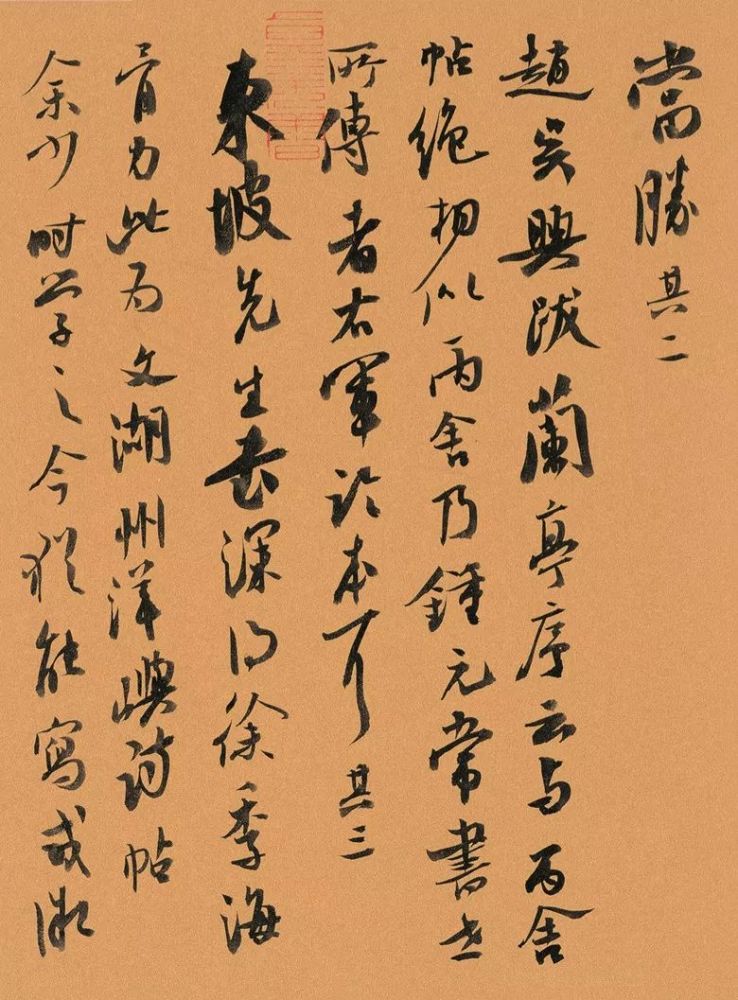 當勝 其二
趙吳興跋蘭亭序云与丙舍
帖絕相似丙舍乃鍾元常書世
所傳者右軍臨本耳 其三
東坡先生書深得徐季海
骨力此為文湖州洋嶼詩帖
余少時學之今猶能寫或微